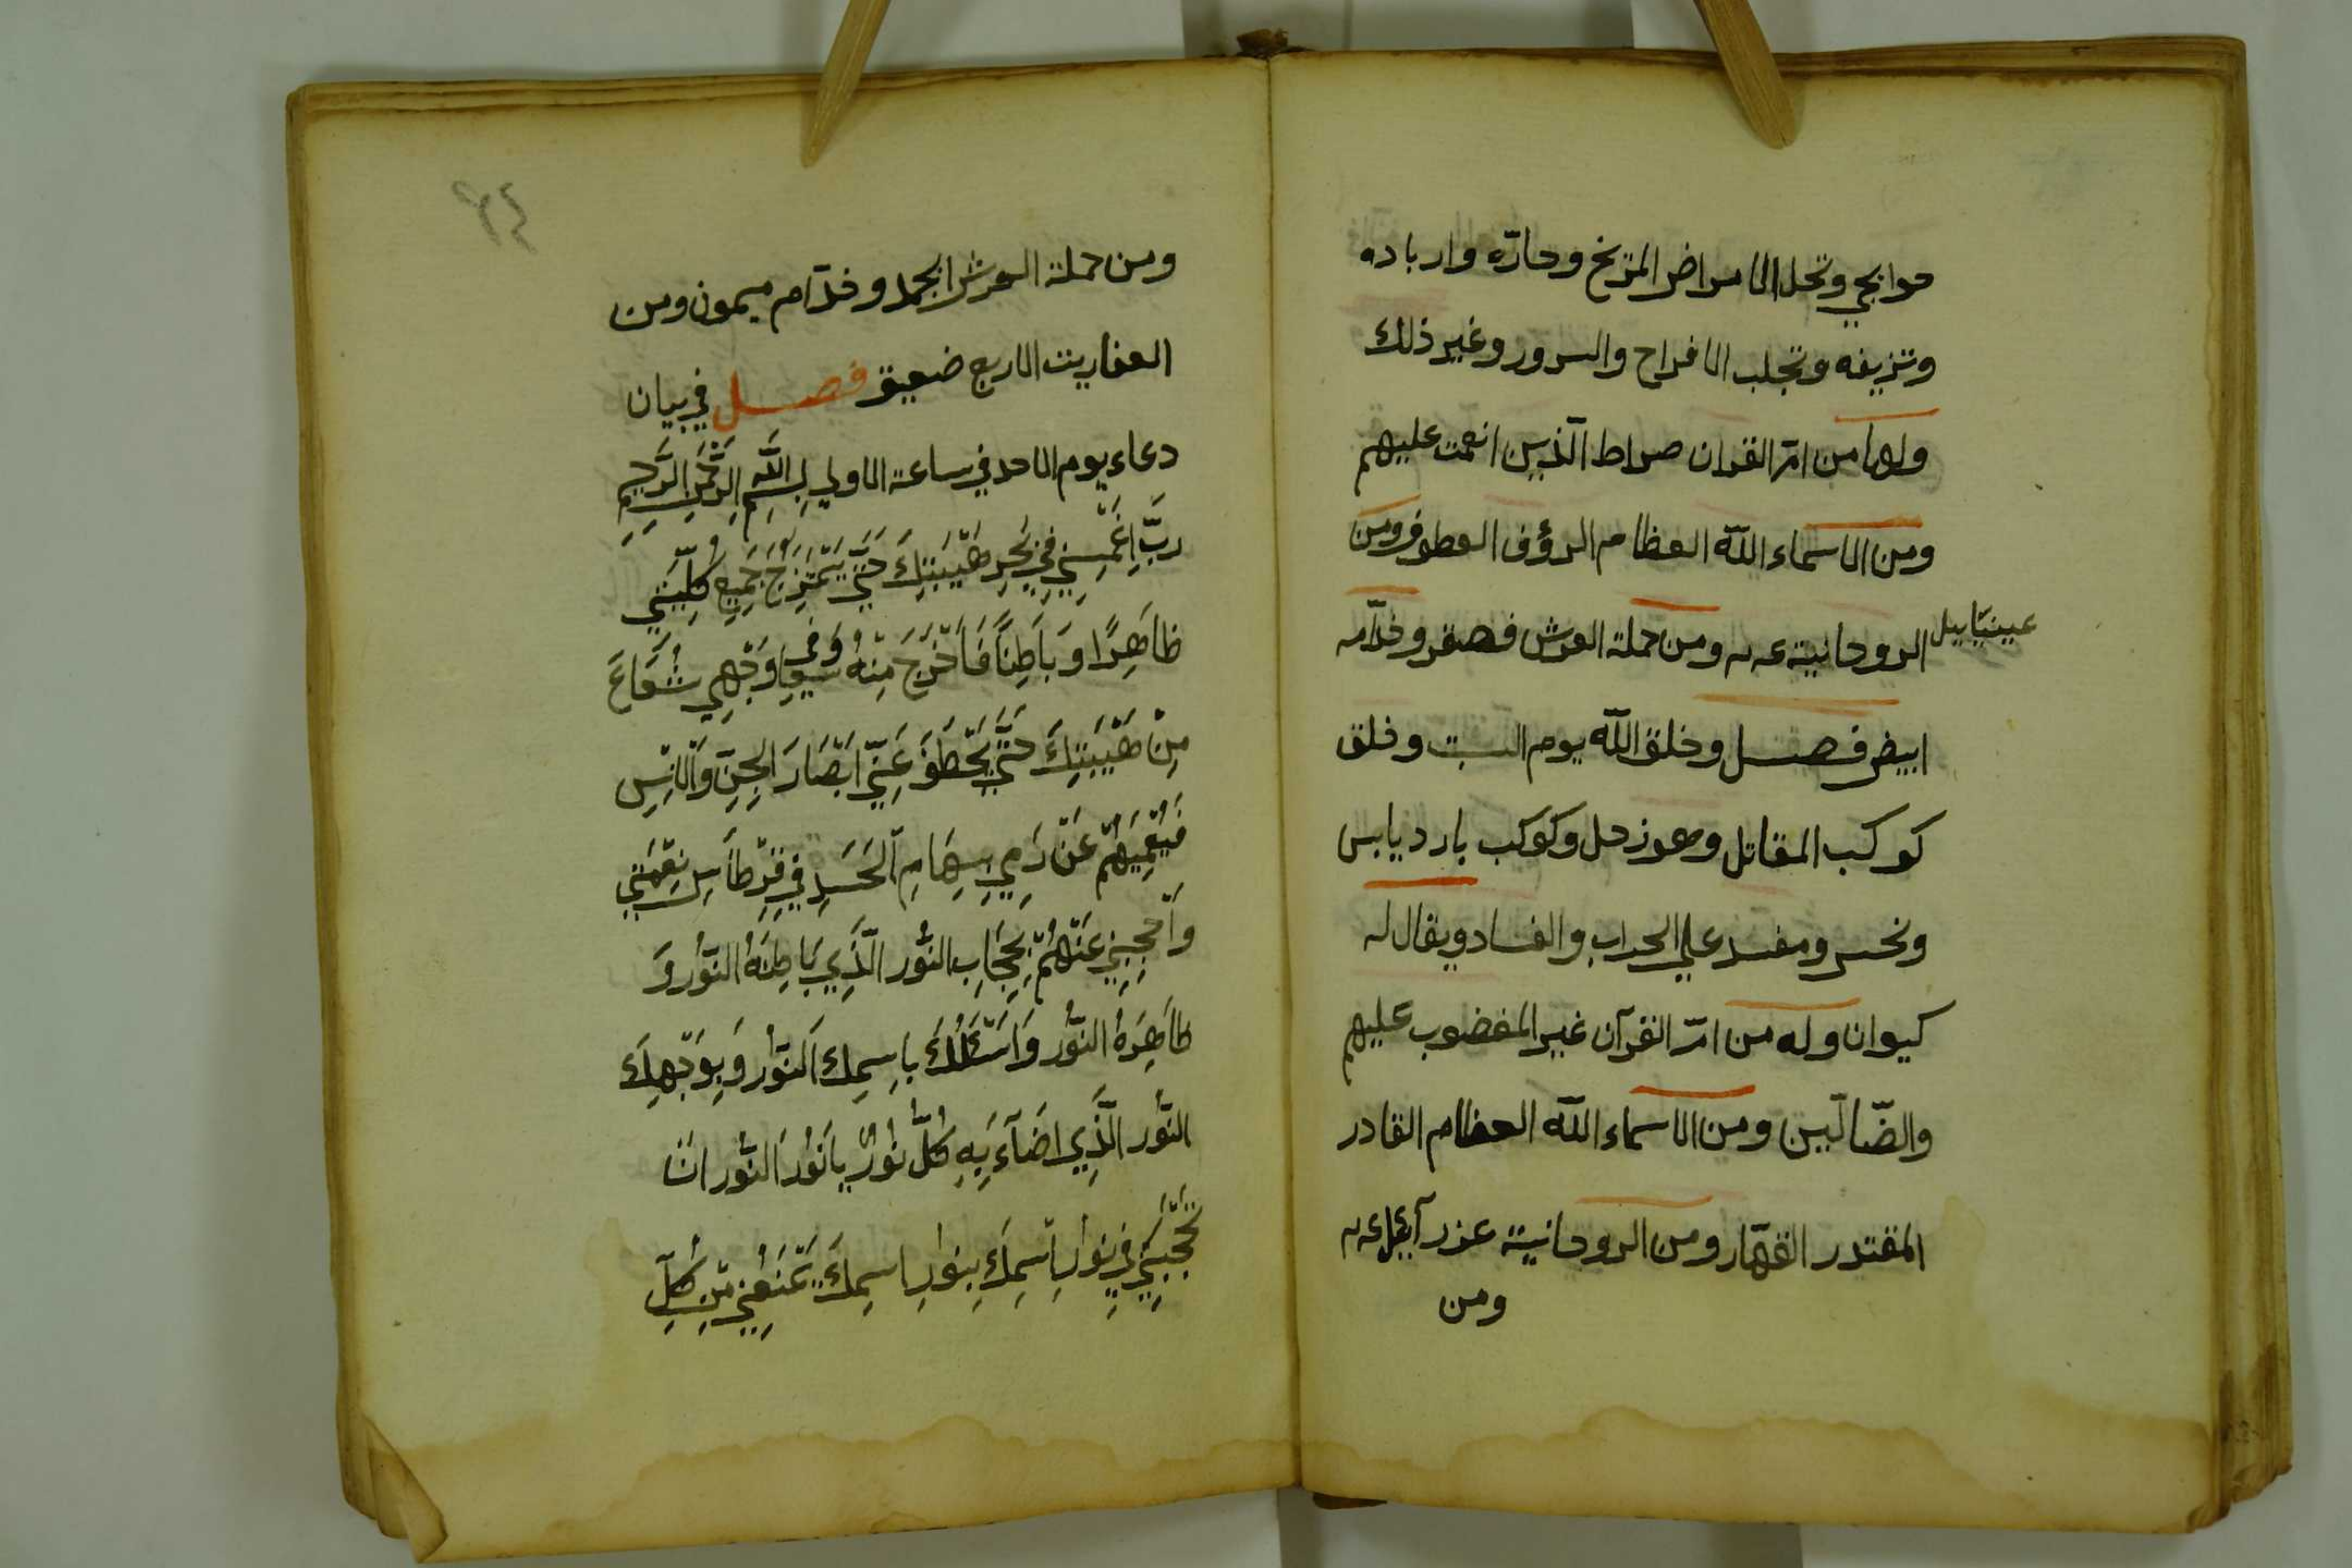 حوايجي وتحل الامراض المزيخ وحارّه وارباده
وتنزيفه وتجلب الافراح والسرور وغير ذلك
ولها من امّ القران صراط الّذين انعمت عليهم
ومن الاسماء اللّه العظام الرؤف العطوف ومن
عينيّاييل
الروحانية عـ ـه ومن حملة العرش فصقر وخدّامه
ابيض فصل وخلق اللّه يوم السبت وخلق
كوكب المقاتل وهو زحل وكوكب بارد يابس
ونحس ومفسد علي الحراب والفساد ويقال له
كيوان وله من امّ القرآن غير المغضوب عليهم
والضّآلّين ومن الاسماء اللّه العظام القادر
المقتدر القهّار ومن الروحانيّة عزرآييل عـ ـه
ومن
٦٤
ومن حملة العرش ابجد وخدّام ميمون ومن
العفاريت الاربع ضعيق فصل في بيان
دعاء يوم الاحد في ساعة الاولي بِسْمِ اللَّهِ الرَّحْمَنِ الرَّحِيمِ
رَبِّ اغْمِسْنِي فِي بَحْرِ هَيْبَتِكَ حَتَّي يَمْتَزِجَ جَمِيعُ كُلِّيَّتِي
ظَاهِرًا وَبَاطِنًا فَاَخْرُجَ مِنْهُ وَفِي وَجْهِي شُعَاعَ
مِنْ هَيْبَتِكَ حَتَّي يَخْطَفَ عَنِّي اَبْصَارَ الْجِنِّ وَالْاِنْسِ
فَيُعْمِيَهُمْ عَنْ رَمِي سِهَامِ الْحَسَدِ فِي قِرْطَاسِ نِعْمَتِي
وَاحْجُبْنِي عَنْهُمْ بِحِجَابِ النُّور الَّذِي بَاطِنَهُ النُّوْر وَ
ظَاهِرَهُ النُّور وَاَسْئَلُكَ بِاسِمِك اَلنُّوْر وَبِوَجْهِكَ
النُّور الَّذِي اضَآءَ بِهِ كُلُّ نُوْرٌ يَا نُوْرَ النُّور ان
تَحْجُبَنِي فِي نُوْرِ اسْمِكَ بِنُورِ اسِمِكَ يَمْنَعُنِي مِنْ كُلِّ